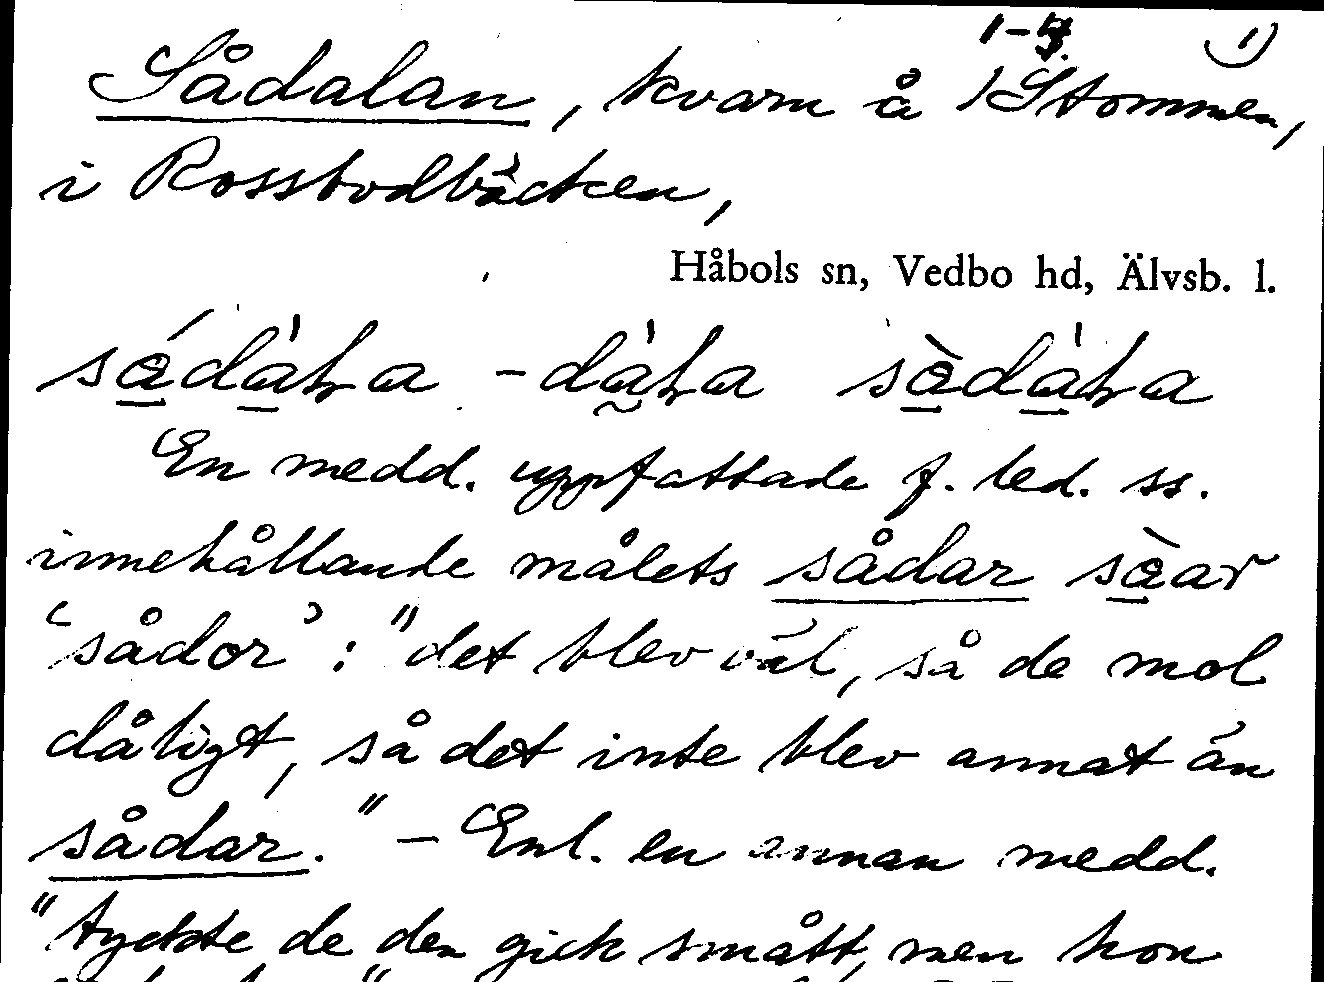 1-7. 1)
Sådalan, kvarn å 1/Stommen,
i Rossbodbäcken,
Håbols sn, Vedbo hd, Älvsb. l.
En medd. uppfattade f. led. ss.
innehållande målets sådar
'sådor': "det blev väl, så de mol
dåligt, så det inte blev annat än
sådar." – Enl. en annan medd.
"tyckte de den gick smått, men hon